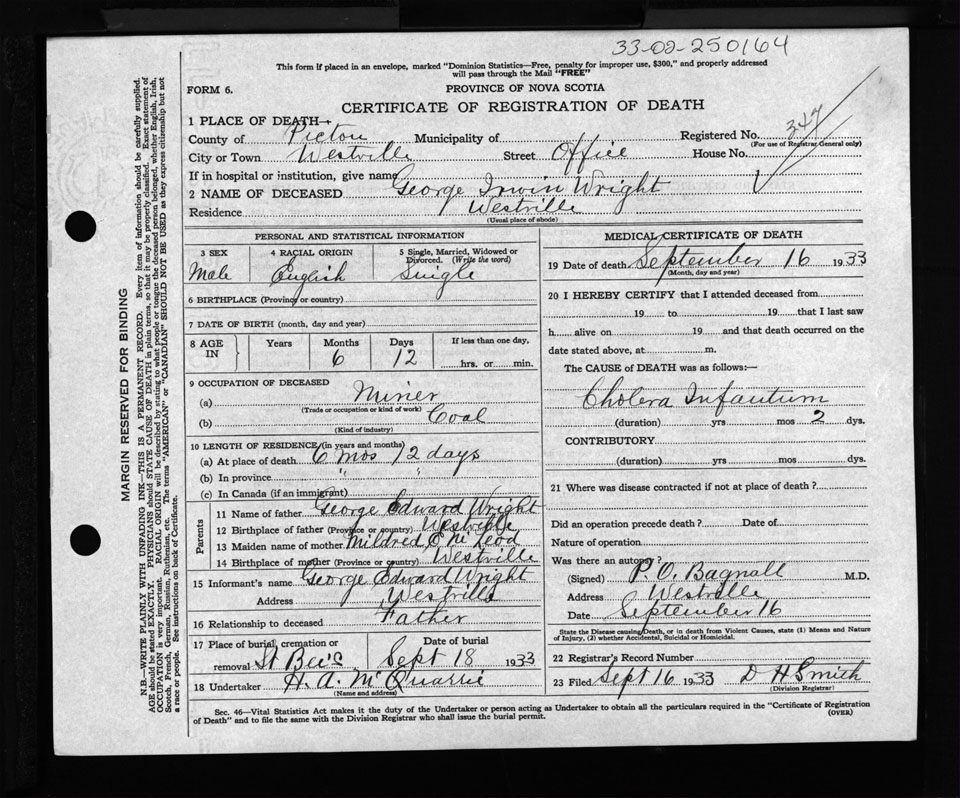 33-02-250164
This form if placed in an envelope, marked "Dominion Statistics—Free, penalty for improper use, $300," and properly addressed
will pass through the Mail "FREE"
FORM 6.
PROVINCE OF NOVA SCOTIA
CERTIFICATE OF REGISTRATION OF DEATH
1 PLACE OF DEATH—
County of Pictou Municipality of Registered No. 347
(For use of Registrar General only)
City or Town Westville Street Office House No.
If in hospital or institution, give name
2 NAME OF DECEASED George Irwin Wright
Residence Westville
(Usual place of abode)
PERSONAL AND STATISTICAL INFORMATION
3 SEX 4 RACIAL ORIGIN 5 Single, Married, Widowed or
Divorced. (Write the word)
Male English Single
6 BIRTHPLACE (Province or country)
7 DATE OF BIRTH (month, day and year)
8 AGE IN Years Months Days If less than one day,
6 12 hrs. or min.
9 OCCUPATION OF DECEASED
(a) Miner
(Trade or occupation or kind of work)
(b) Coal
(Kind of industry)
10 LENGTH OF RESIDENCE (in years and months)
(a) At place of death 6 mos 12 days
(b) In province " "
(c) In Canada (if an immigrant)
Parents
11 Name of father George Edward Wright
12 Birthplace of father (Province or country) Westville
13 Maiden name of mother Mildred E McLeod
14 Birthplace of mother (Province or country) Westville
15 Informant's name George Edward Wright
Address Westville
16 Relationship to deceased Father
17 Place of burial, cremation or Date of burial
removal St Bee's Sept 18 1933
18 Undertaker H. A. McQuarrie
(Name and address)
MEDICAL CERTIFICATE OF DEATH
19 Date of death September 16 1933
(Month, day and year)
20 I HEREBY CERTIFY that I attended deceased from
19 to 19 that I last saw
h alive on 19 and that death occurred on the
date stated above, at m.
The CAUSE of DEATH was as follows:—
Cholera Infantum
(duration) yrs mos 2 dys.
CONTRIBUTORY
(duration) yrs mos dys.
21 Where was disease contracted if not at place of death?
Did an operation precede death? Date of
Nature of operation
Was there an autopsy?
(Signed) P. O. Bagnall M.D.
Address Westville
Date September 16
State the Disease causing Death, or in death from Violent Causes, state (1) Means and Nature
of Injury, (2) whether Accidental, Suicidal or Homicidal.
22 Registrar's Record Number
23 Filed Sept 16 1933 D H Smith
(Division Registrar)
Sec. 46—Vital Statistics Act makes it the duty of the Undertaker or person acting as Undertaker to obtain all the particulars required in the "Certificate of Registration
of Death" and to file the same with the Division Registrar who shall issue the burial permit.
(OVER)
MARGIN RESERVED FOR BINDING
N.B.—WRITE PLAINLY WITH UNFADING INK—THIS IS A PERMANENT RECORD. Every item of information should be carefully supplied.
AGE should be stated EXACTLY. PHYSICIANS should STATE CAUSE OF DEATH in plain terms, so that it may be properly classified. Exact statement of
OCCUPATION is very important. RACIAL ORIGIN will be described by stating to what people or tongue the deceased person belonged, whether English, Irish,
Scotch, French, German, Russian, Ruthenian, etc. The terms "AMERICAN" or "CANADIAN" SHOULD NOT BE USED as they express citizenship but not
a race or people. See instructions on back of Certificate.